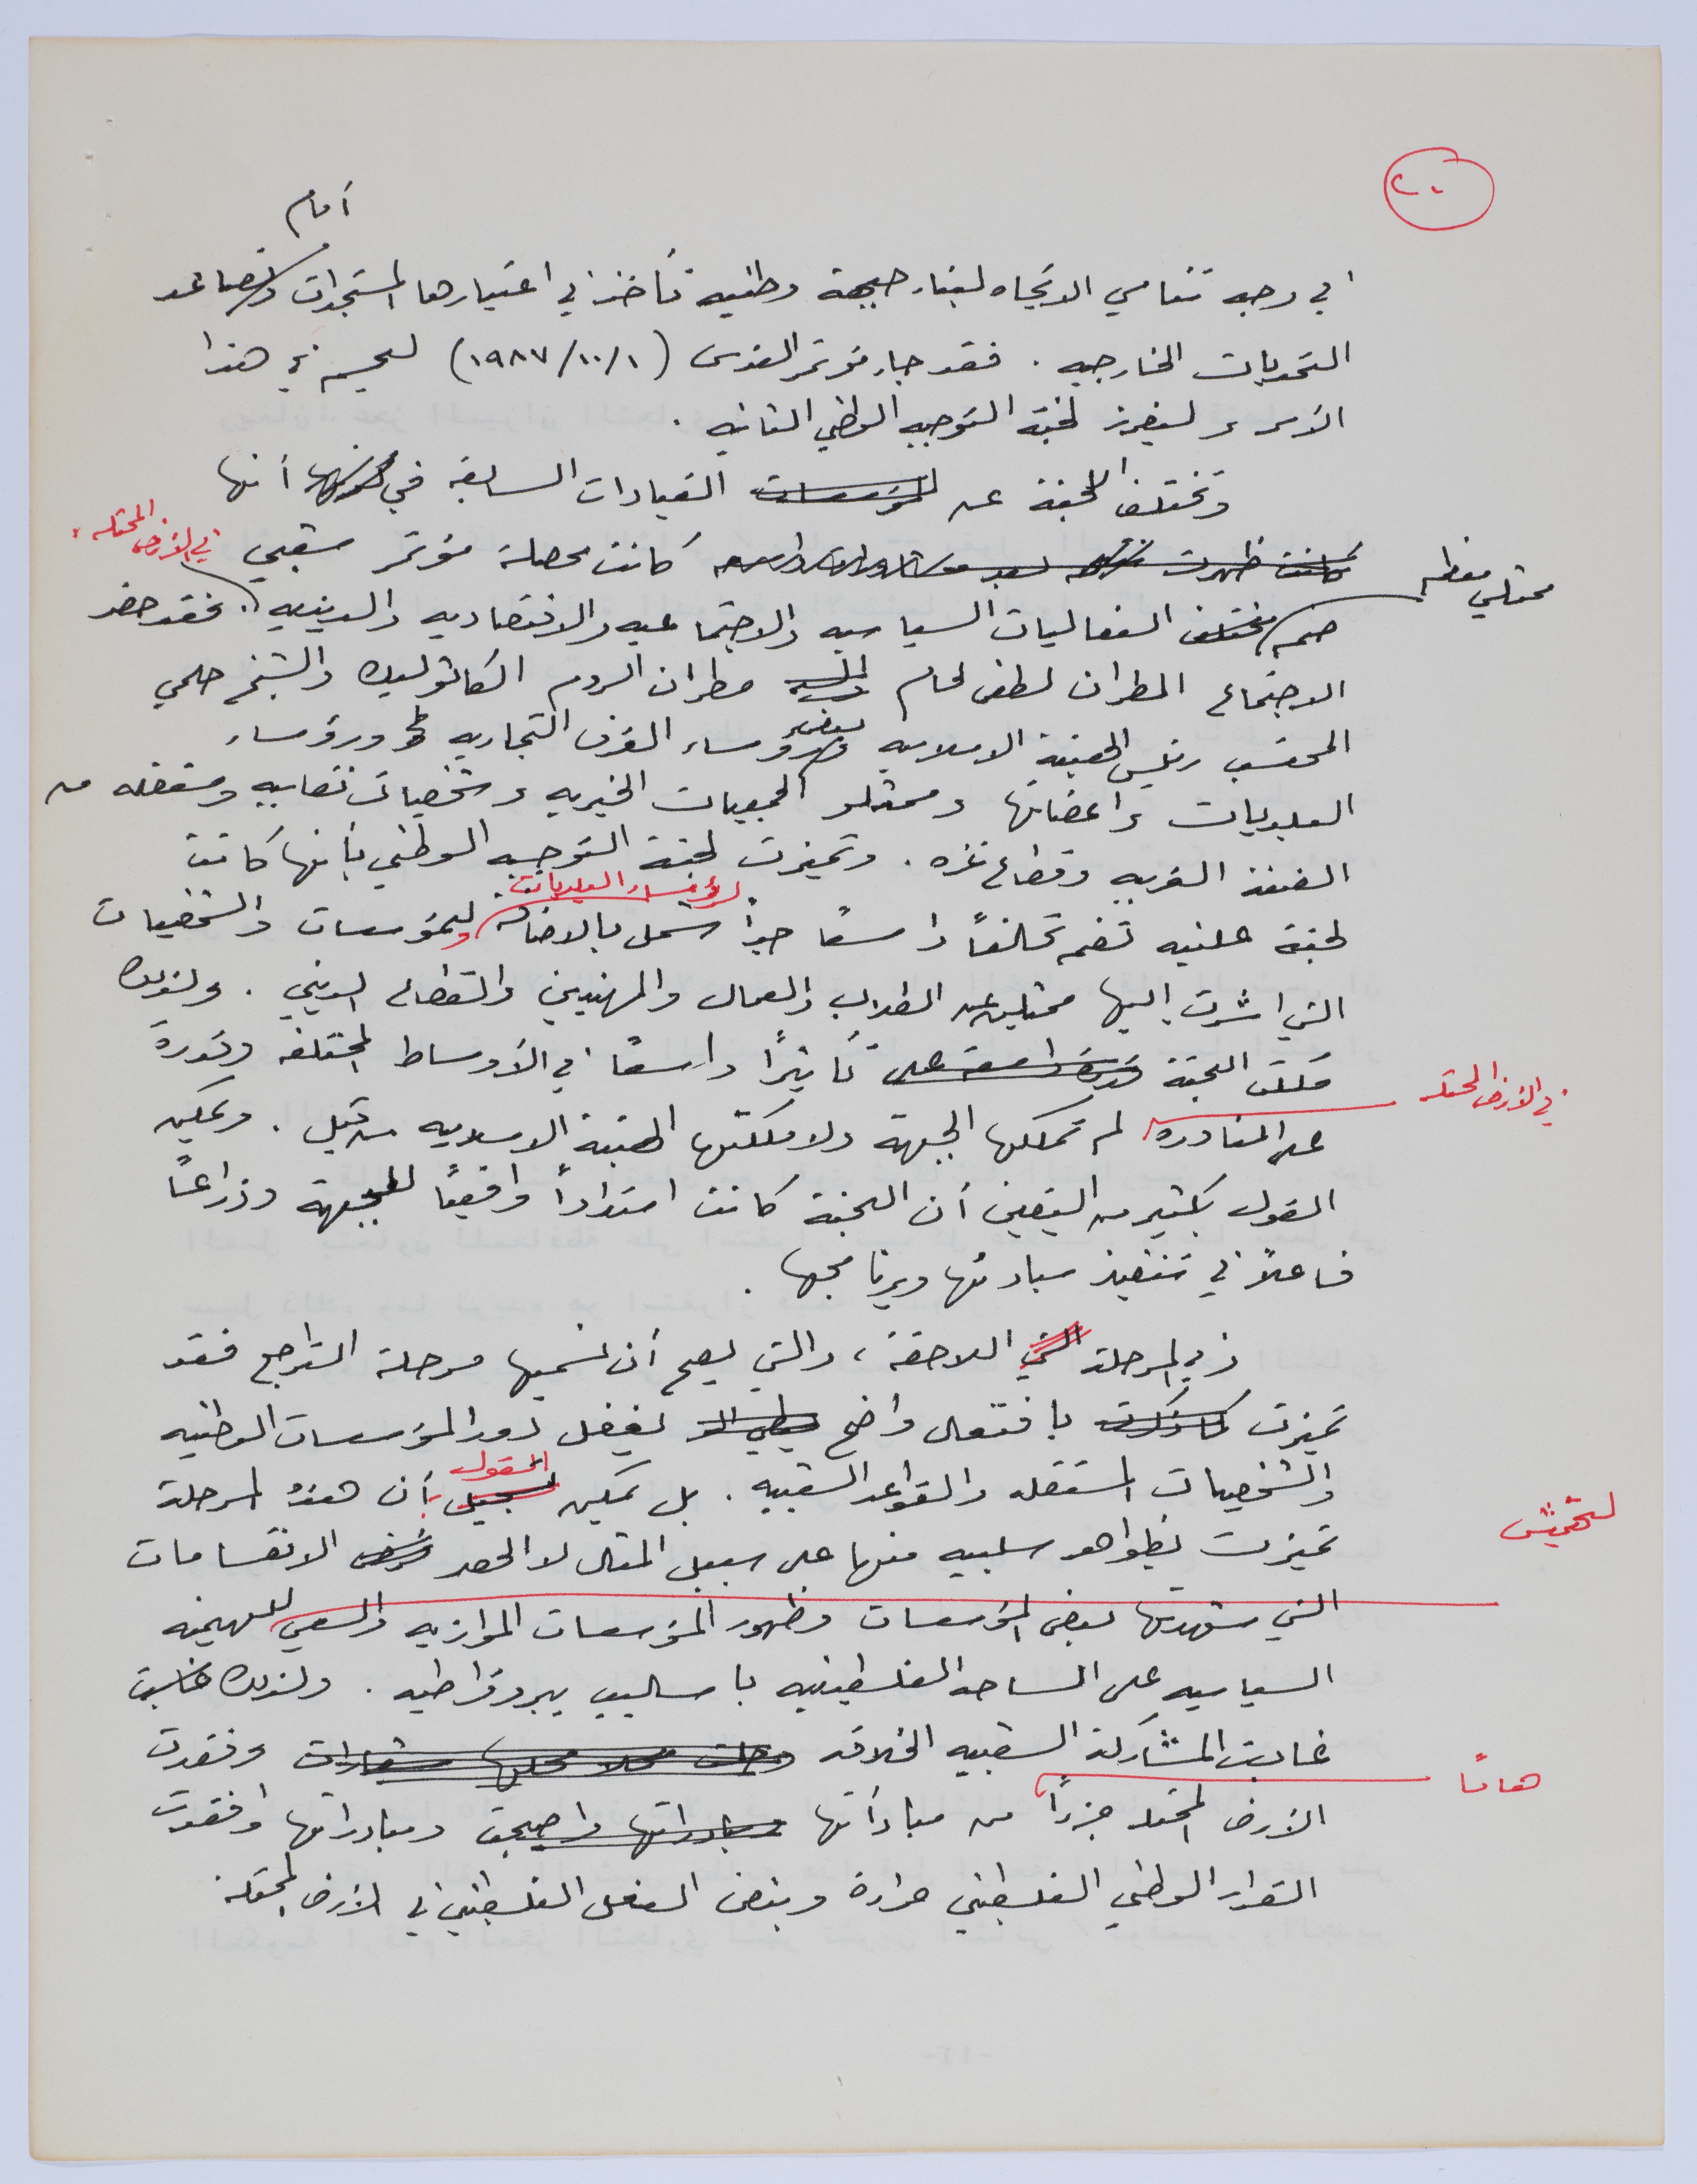 ٢٠
أمام
في وجه تنامي الاتجاه لبناء جبهة وطنيه تأخذ في اعتبارها المستجدات وتصاعد
التحديات الخارجيه . فقد جاء مؤتمر القدس (١٩٨٧/١٠/١) ليحسم في هذا
الأمر وليفرز لجنة التوجيه الوطني الثانيه .
وتختلف اللجنة عن القيادات السابقه في أنها
كانت محصلة مؤتمر شعبي في الأرض المحتله
ضم ممثلي معظم الفعاليات السياسيه والاجتماعيه والاقتصاديه والدينيه . فقد حضر
الاجتماع المطران لطفي لحام مطران الروم الكاثوليك والشيخ حلمي
المحتسب رئيس الهيئة الاسلاميه وبعض رؤساء الغرف التجاريه ورؤساء
البلديات واعضائها وممثلو الجمعيات الخيريه وشخصيات نقابيه ومستقله من
الضفة الغربيه وقطاع غزه . وتميزت لجنة التوجيه الوطني بأنها كانت
لجنة علنيه تضم تحالفاً واسعاً جداً شمل بالاضافة لرؤساء البلديات وللمؤسسات والشخصيات
التي اشرت إليها ممثلين عن الطلاب والعمال والمهنيين والقطاع الديني . ولذلك
ملكت اللجنة تأثيراً واسعاً في الأوساط المختلفه وقدرة
على المناورة في الأرض المحتله لم تملكها الجبهة ولا ملكتها الهيئة الاسلاميه من قبل . ويمكن
القول بكثير من اليقين أن اللجنة كانت امتداداً واقعياً للجبهة وذراعاً
فاعلاً في تنفيذ مبادئها وبرنامجها .
في المرحلة اللاحقة ، والتي يصح أن نسميها مرحلة التراجع فقد
تميزت بافتعال واضح يغفل دور المؤسسات الوطنيه
والشخصيات المستقله والقواعد الشعبيه . بل يمكن القول بأن هذه المرحلة
تميزت بظواهر سلبيه منها على سبيل المثال لا الحصر الانقسامات
التي شهدتها بعض المؤسسات وظهور المؤسسات الموازيه والسعي لتهميش للهيمنه
السياسيه على الساحه الفلسطينيه باساليب بيروقراطيه . ولذلك
غابت المشاركة الشعبيه الخلاقه وفقدت
الأرض المحتله جزءاً هاماً من مبادأتها ومبادراتها وافقدت
القرار الوطني الفلسطيني حرارة ونبض الفعل الفلسطيني في الأرض المحتلة